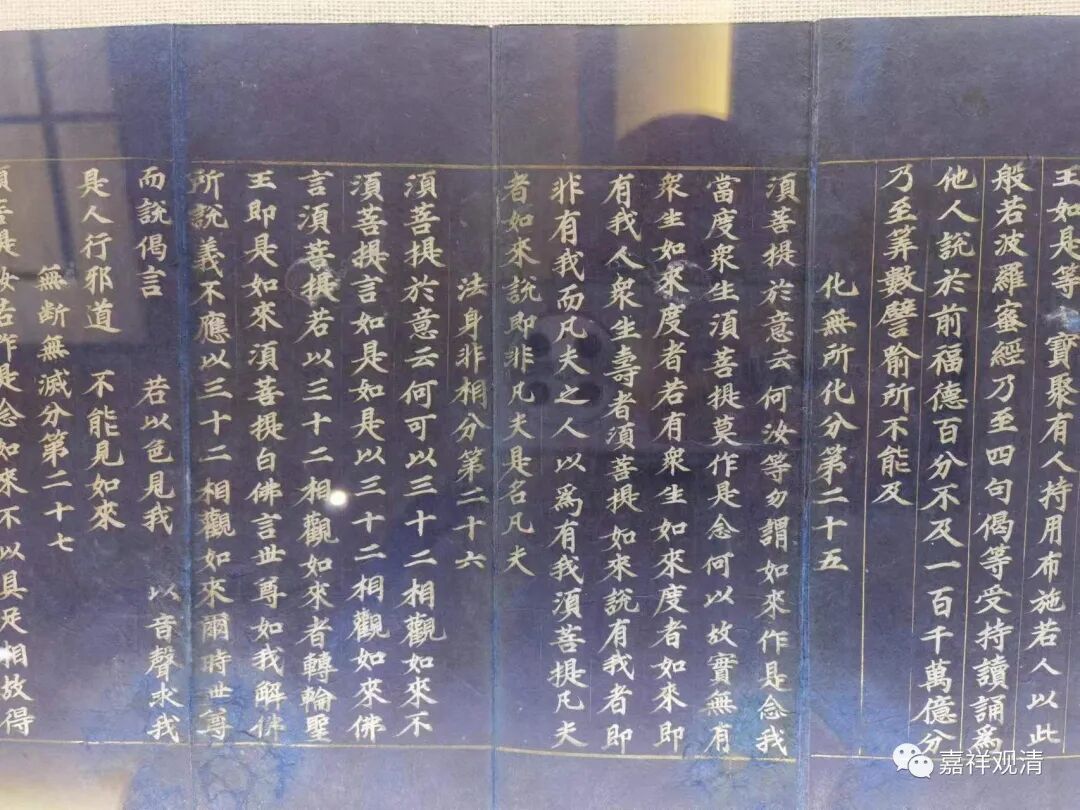 王如是等 寶聚有人持用布施若人以此
般若波羅蜜經乃至四句偈等受持讀誦爲
他人說於前福德百分不及一百千萬億分
乃至筭數譬喻所不能及
化無所化分第二十五
須菩提於意云何汝等勿謂如來作是念我
當度衆生須菩提莫作是念何以故實無有
衆生如來度者若有衆生如來度者如來即
有我人衆生壽者須菩提如來說有我者即
非有我而凡夫之人以爲有我須菩提凡夫
者如來說即非凡夫是名凡夫
法身非相分第二十六
須菩提於意云何可以三十二相觀如來不
須菩提言如是如是以三十二相觀如來佛
言須菩提若以三十二相觀如來者轉輪聖
王即是如來須菩提白佛言世尊如我解佛
所說義不應以三十二相觀如來爾時世尊
而說偈言 若以色見我 以音聲求我
是人行邪道 不能見如來
無斷無滅分第二十七
須菩提汝若作是念如來不以具足相故得
嘉祥观清